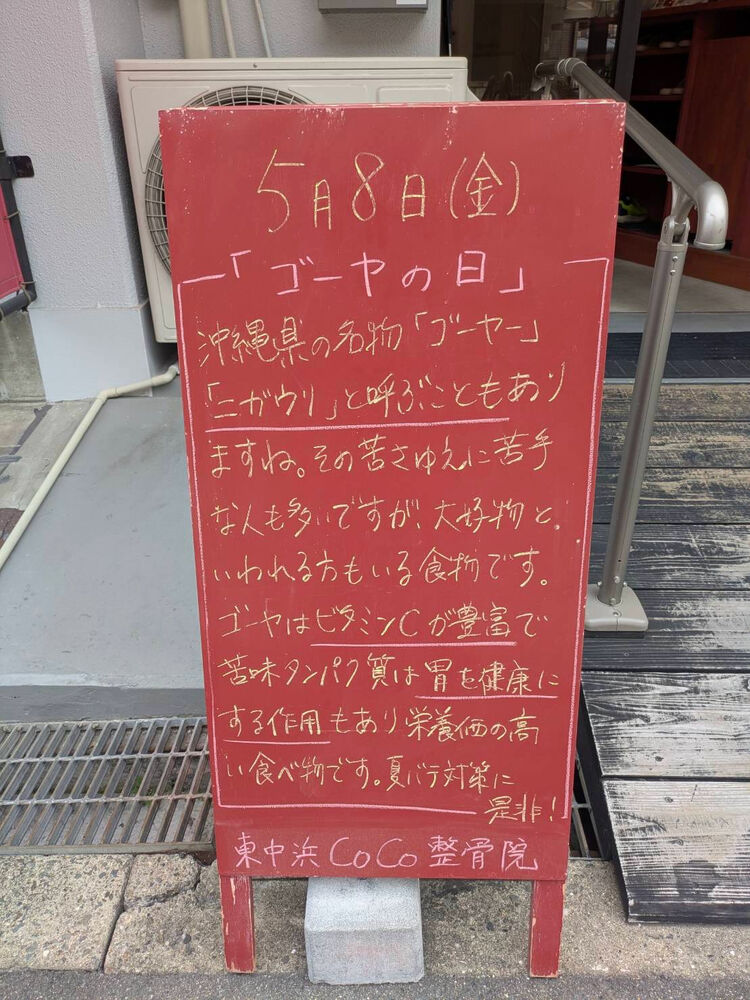 5月8日(金)
「ゴーヤの日」
沖縄県の名物「ゴーヤー」
「ニガウリ」と呼ぶこともあり
ますね。その苦さゆえに苦手
な人も多いですが、大好物と
いわれる方もいる食物です。
ゴーヤはビタミンCが豊富で
苦味タンパク質は胃を健康に
する作用もあり栄養価の高
い食べ物です。夏バテ対策に
是非!
東中浜CoCo整骨院